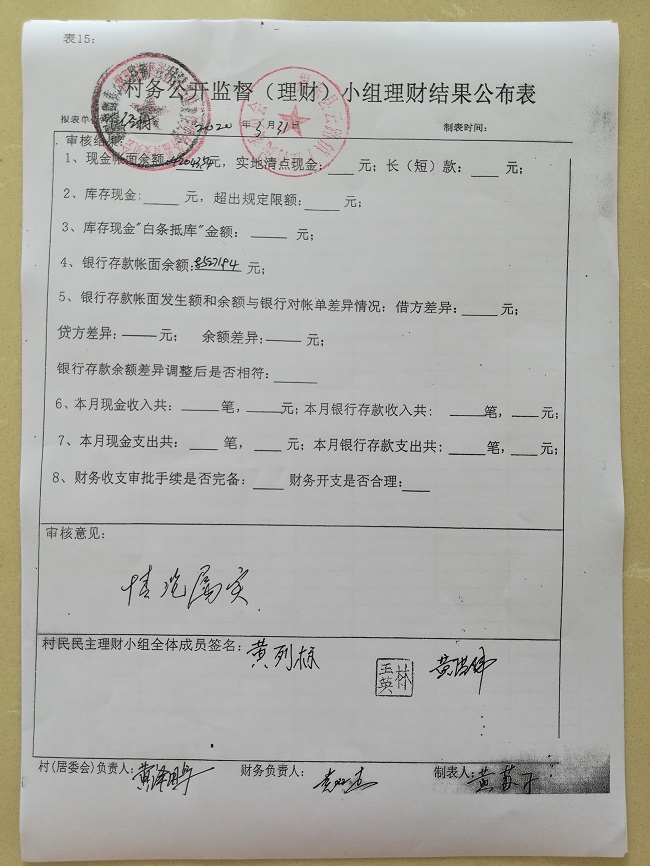 表15:
村务公开监督（理财）小组理财结果公布表
报表单位: 2020 年 3 月 31 日 制表时间:
审核结果:
1、现金帐面余额: 元，实地清点现金: 元; 长（短）款: 元;
2、库存现金: 元，超出规定限额: 元;
3、库存现金"白条抵库"金额: 元;
4、银行存款帐面余额: 元;
5、银行存款帐面发生额和余额与银行对帐单差异情况: 借方差异: 元;
贷方差异: 元; 余额差异: 元;
银行存款余额差异调整后是否相符:
6、本月现金收入共: 笔, 元; 本月银行存款收入共: 笔, 元;
7、本月现金支出共: 笔, 元; 本月银行存款支出共: 笔, 元;
8、财务收支审批手续是否完备: 财务开支是否合理:
审核意见:
情况属实
村民民主理财小组全体成员签名: 黄列标
王英林 黄浩伟
村(居委会)负责人: 财务负责人: 制表人: